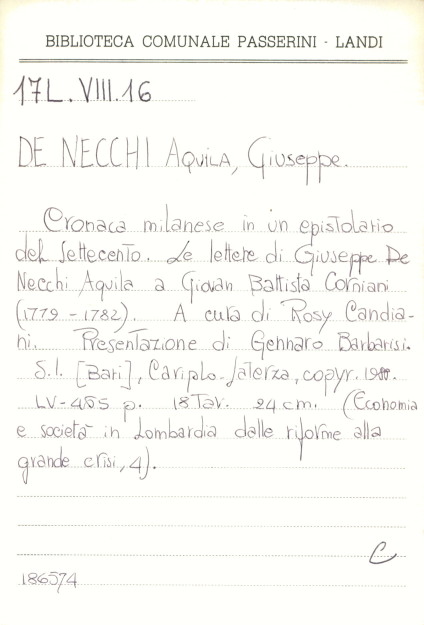 BIBLIOTECA COMUNALE PASSERINI - LANDI
17L.VIII.16
DE NECCHI AQUILA, Giuseppe.
Cronaca milanese in un epistolario
del Settecento. Le lettere di Giuseppe De
Necchi Aquila a Giovan Battista Corniani
(1779 - 1782). A cura di Rosy Candia-
ni. Presentazione di Gennaro Barbarisi.
S.l. [Bari], Cariplo-Laterza, copyr.
LV-455 p. 18 Tav. 24 cm. (Economia
e società in Lombardia dalle riforme alla
grande crisi, 4).
C
186574